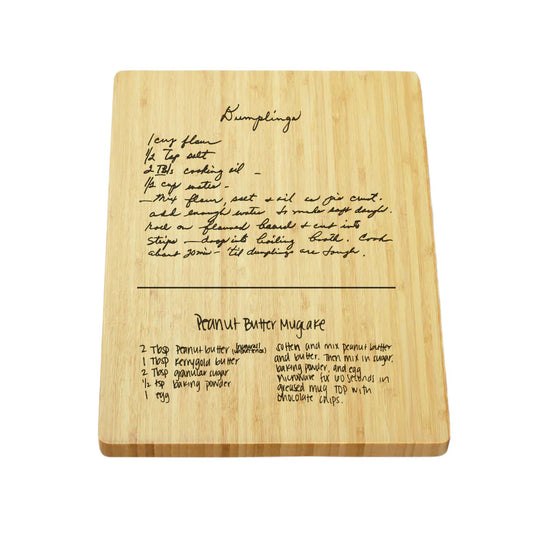 Dumplings
1 cup flour
1/2 Tsp salt
2 TBls cooking oil -
1/2 cup water -
- Mix flour, salt & oil as pie crust.
add enough water to make soft dough.
Roll on floured board & cut into
strips - drop into boiling broth. Cook
about 20 min - 'til dumplings are tough.
Peanut Butter Mugcake
2 Tbsp Peanut butter (natural/
1 Tbsp kerrygold butter
2 Tbsp granular sugar
1/2 tsp baking powder
1 egg
Soften and mix peanut butter
and butter. Then mix in sugar,
baking powder, and egg
microwave for 60 seconds in
greased mug. TOP with
chocolate chips.